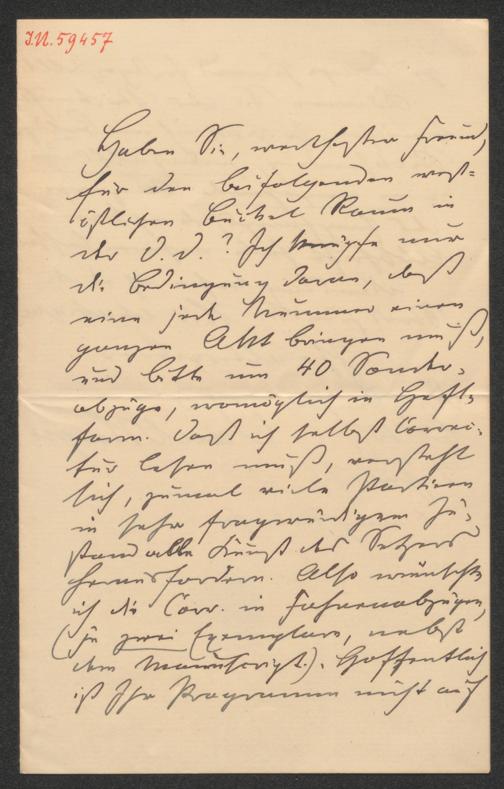 I.N. 59457
Haben Sie, werthester Freund,
für den beifolgenden west=
östlichen Einakt Raum in
der D. D.? Ich knüpfe nur
die Bedingung daran, daß
eine jede Nummer einen
ganzen Akt bringen muß,
und bitte um 40 Sonder=
abzüge, womöglich in Heft=
form. Daß ich selbst Correc=
tur lesen muß, versteht
sich, zumal viele Partieen
in sehr fragwürdigem Zu=
stand alle Kunst des Setzers
herausfordern. Also wünschte
ich die Corr. in Fahnenabzügen,
(in zwei Exemplaren, nebst
dem Manuscript.). Hoffentlich
ist Ihr Programm nicht auf